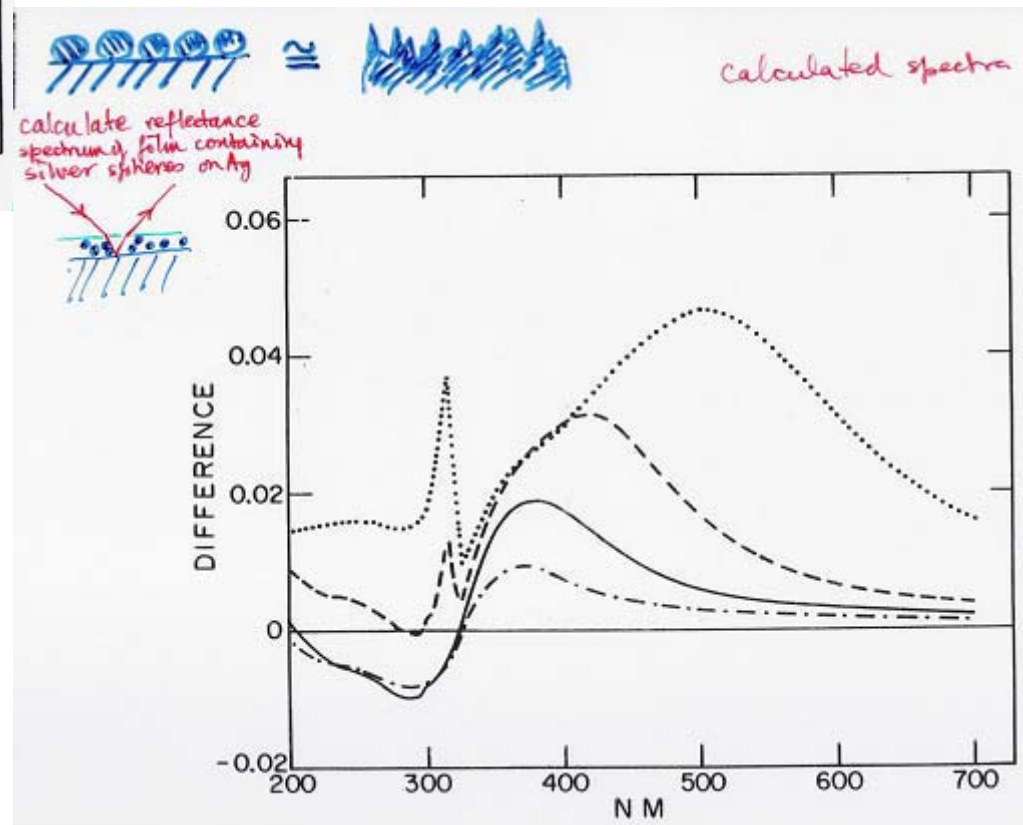 ≅
calculated spectra
calculate reflectance
spectrum of film containing
silver spheres on Ag
DIFFERENCE
0.06
0.04
0.02
0
-0.02
200 300 400 500 600 700
NM